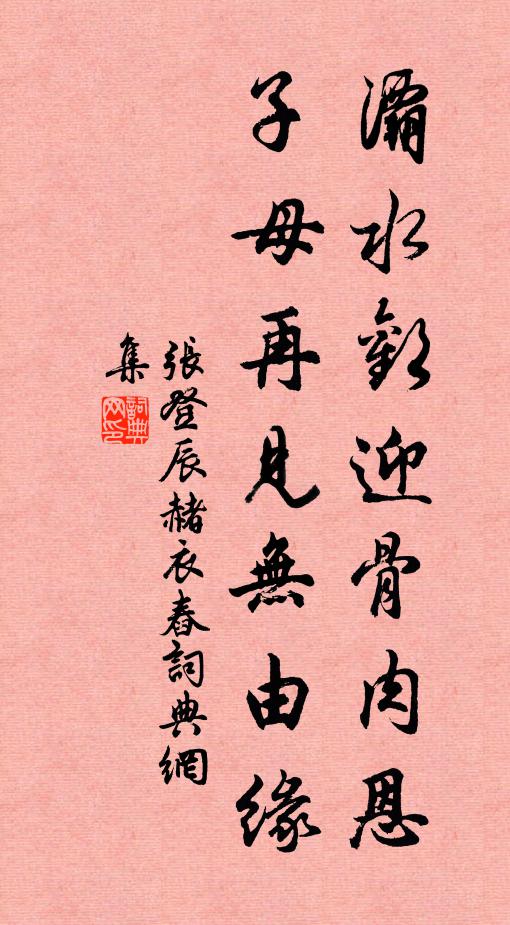 灞水歡迎骨肉恩
子母再見無由緣
張登辰赭衣舂詞典網
集
詞典
网印